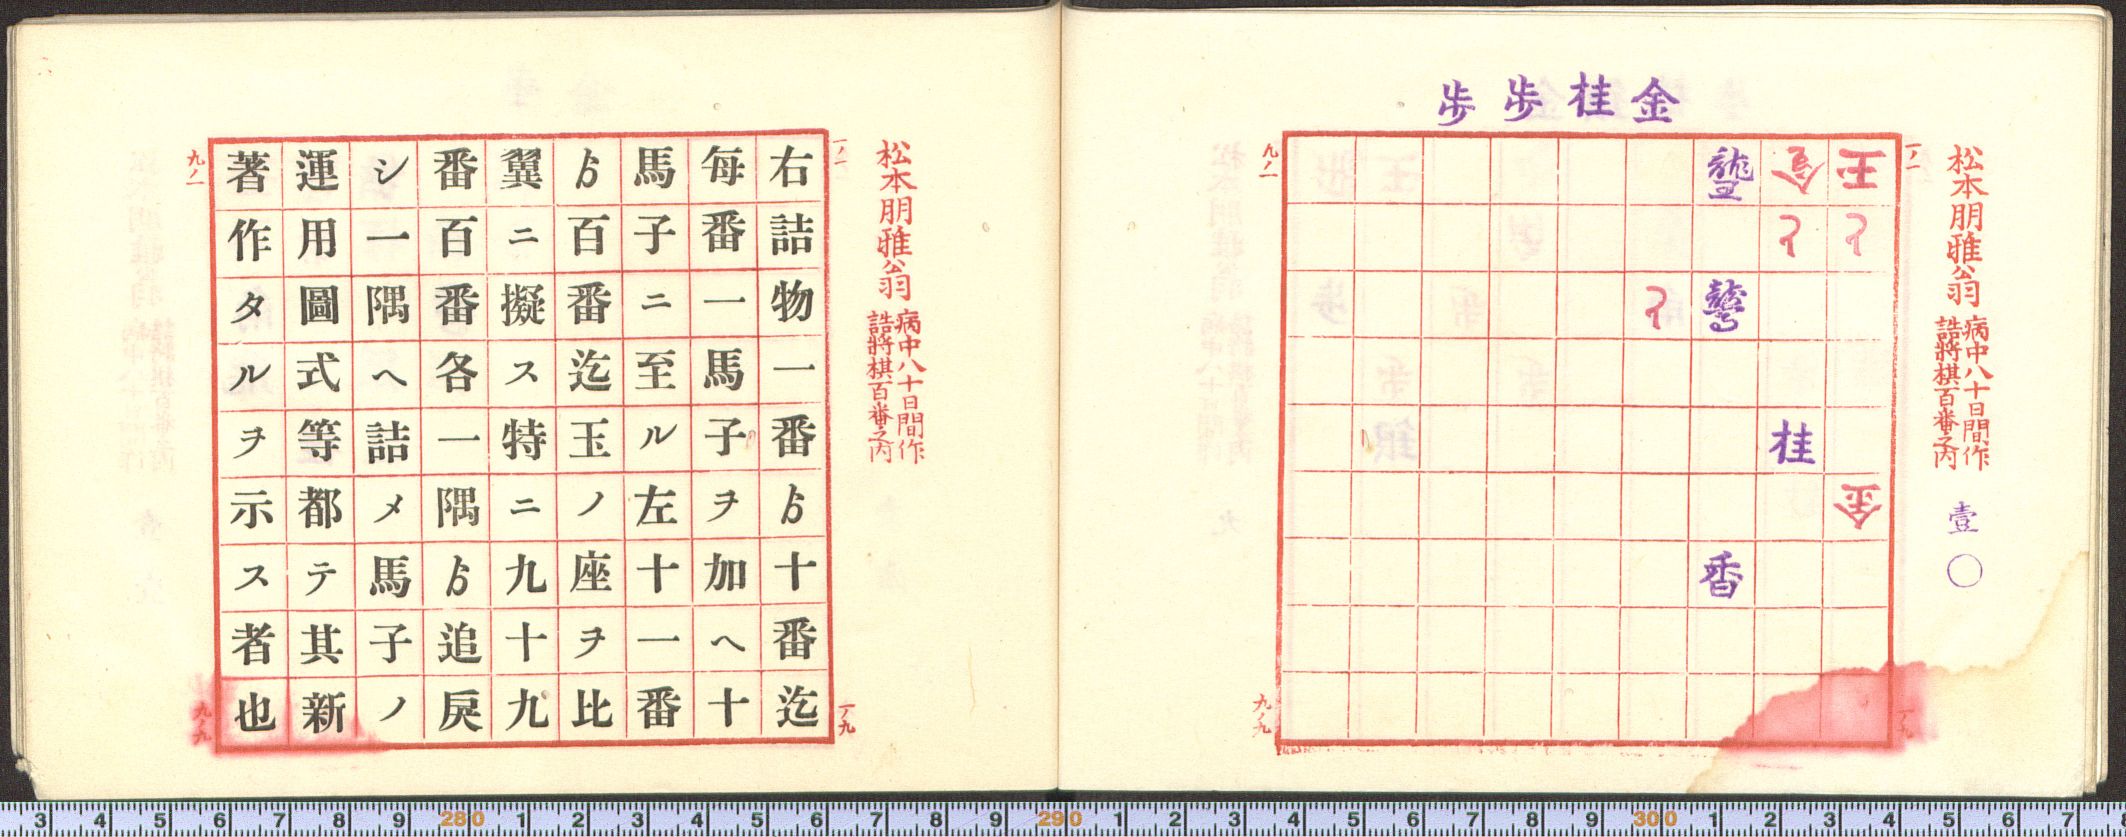 松本朋雅翁
病中八十日間作
詰將棋百番之内
壹〇
一ノ一
一ノ九
金桂歩歩
王
と
金
と
桂
龍
香
と
九ノ一
九ノ九
松本朋雅翁
病中八十日間作
詰將棋百番之内
一ノ一
一ノ九
右詰物一番ゟ十番迄
每番一馬子ヲ加ヘ十
馬子ニ至ル左十一番
ゟ百番迄玉ノ座ヲ比
翼ニ擬ス特ニ九十九
番百番各一隅ゟ追戾
シ一隅ヘ詰メ馬子ノ
運用圖式等都テ其新
著作タルヲ示ス者也
九ノ一
九ノ九
3 4 5 6 7 8 9 280 1 2 3 4 5 6 7 8 9 290 1 2 3 4 5 6 7 8 9 300 1 2 3 4 5 6 7